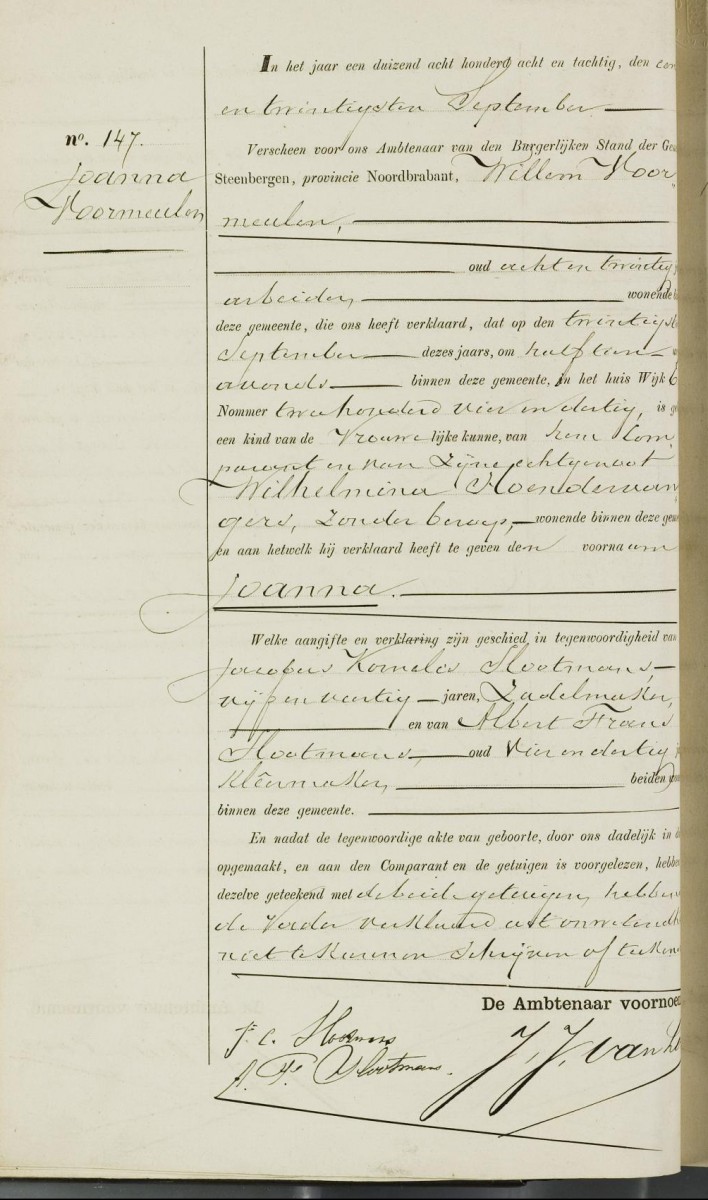 nº. 147.
Joanna
Voormeulen
In het jaar een duizend acht honderd acht en tachtig, den een
en twintigsten September
Verscheen voor ons Ambtenaar van den Burgerlijken Stand der Ge
Steenbergen, provincie Noordbrabant, Willem Voor-
meulen,
oud acht en twintig
arbeider, wonende
deze gemeente, die ons heeft verklaard, dat op den twintigst
September dezes jaars, om half tien
avonds binnen deze gemeente, in het huis Wijk
Nommer twee honderd vier en dertig, is g
een kind van de Vrouwe lijke kunne, van hem Com
parant en van Zijne echtgenoot
Wilhelmina Hoendervan
gers, Zonder beroep, wonende binnen deze gem
en aan hetwelk hij verklaard heeft te geven den voornaam
Joanna.
Welke aangifte en verklaring zijn geschied in tegenwoordigheid van
Jacobus Kornelis Slootmans,
vijf en veertig jaren, Zadelmaker,
en van Albert Frans
Slootmans, oud Vier en dertig j
Kleêrmaker, beiden
binnen deze gemeente.
En nadat de tegenwoordige akte van geboorte, door ons dadelijk in d
opgemaakt, en aan den Comparant en de getuigen is voorgelezen, hebben
dezelve geteekend met de beide getuigen, hebben
de Vader verklaard uit onwetendh
niet te Kunnen Schrijven of teeken
De Ambtenaar voornoe
J. C. Slootmans
A. F. Slootmans.
J. J. van